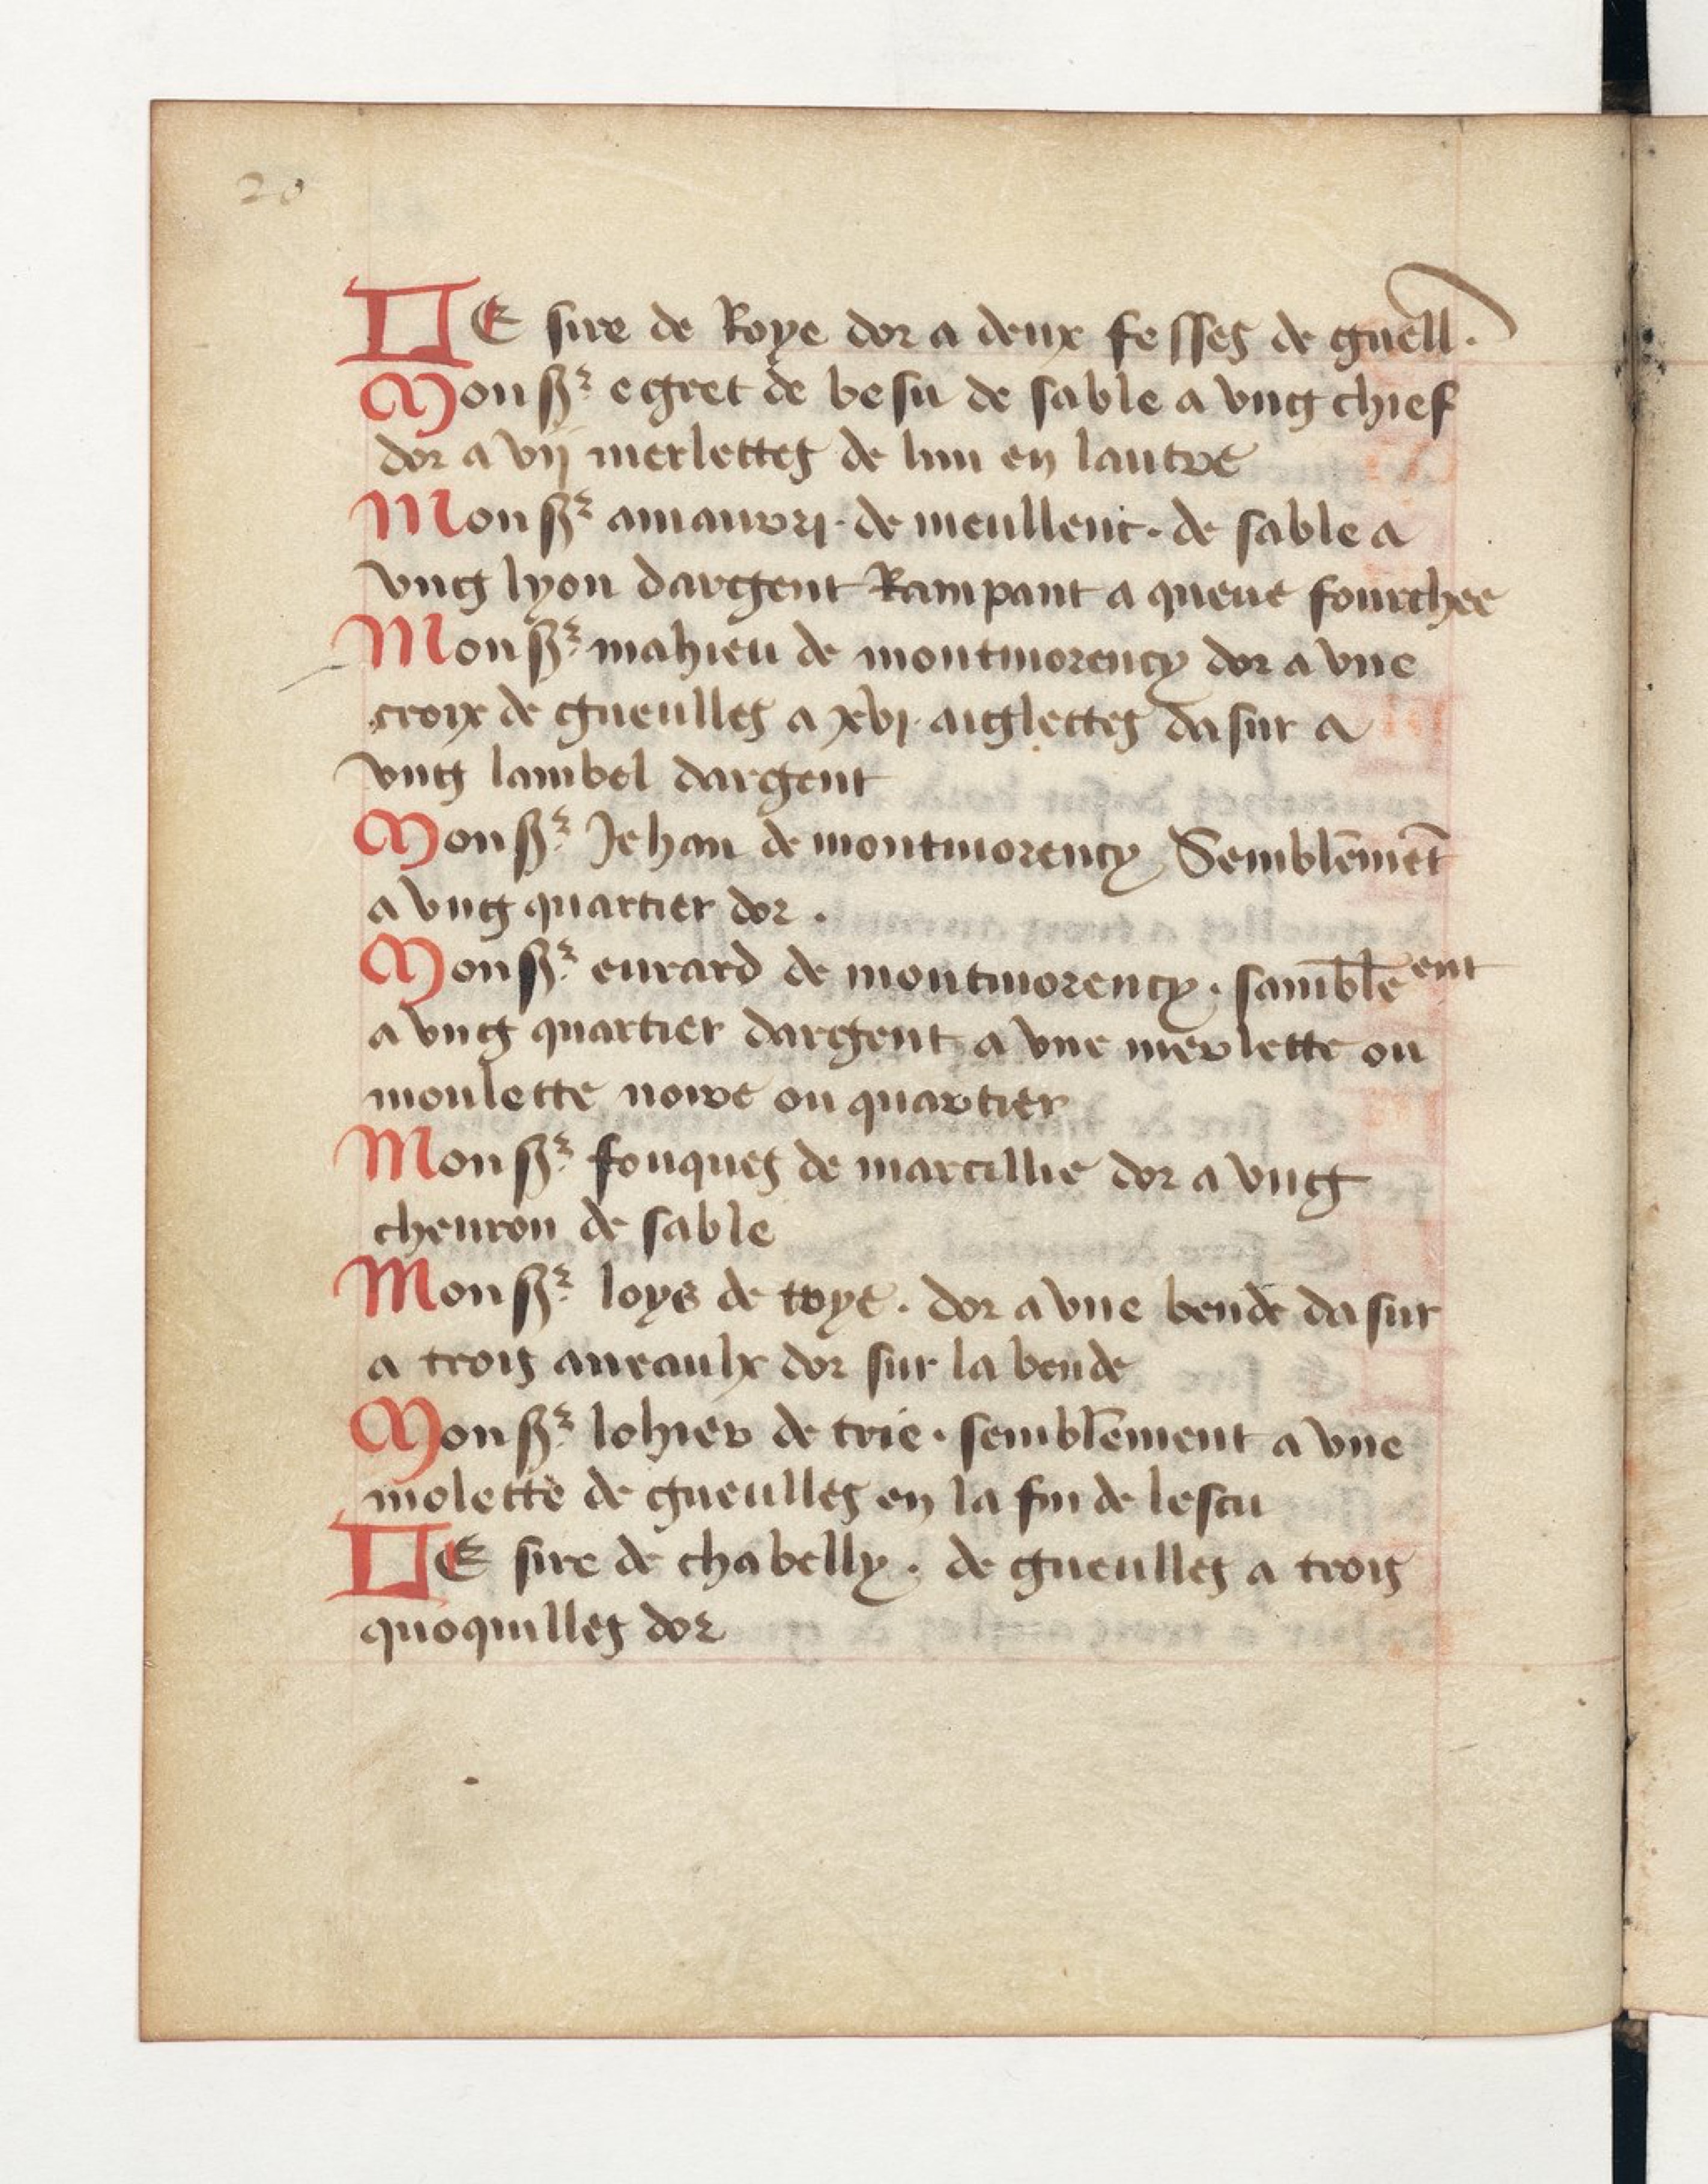 20
LE sire de Roye dor a deux fesses de guell.
Monsr egret de besu de sable a vng chief
dor a vij merlettes de lun en lautre
Monsr amaurri. de meullent. de sable a
vng lyon dargent Rampant a queue fourchee
Monsr mahieu de montmorency dor a vne
croix de gueulles a xvj. aiglettes dasur a
vng lambel dargent
Monsr Jehan de montmorency Semblēmēt
a vng quartier dor.
Monsr eurard de montmorency. samblēent
a vng quartier dargent a vne merlette ou
moulette noire ou quartier
Monsr fouques de marcillie dor a vng
cheuron de sable
Monsr loys de toye. dor a vne bende dasur
a trois aneaulx dor sur la bende
Monsr lohier de trie. semblēment a vne
molette de gueulles en la fin de lescu
LE sire de chabelly. de gueulles a trois
quoquilles dor